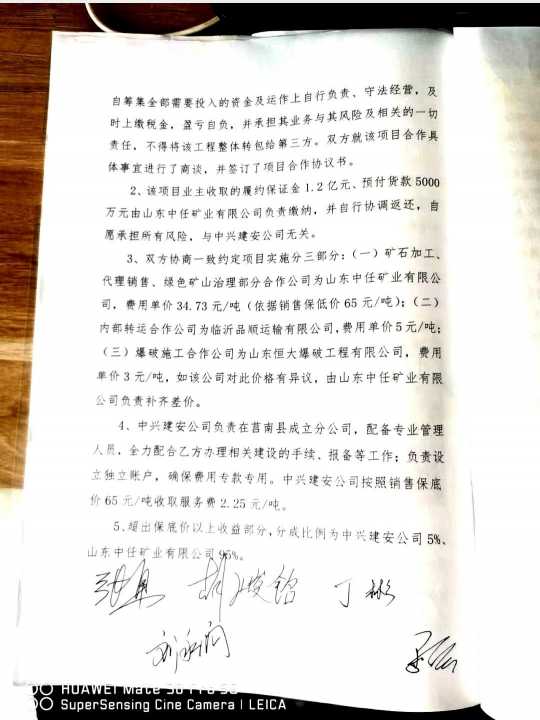 自筹集全部需要投入的资金及运作上自行负责、守法经营，及
时上缴税金，盈亏自负，并承担其业务与其风险及相关的一切
责任，不得将该工程整体转包给第三方。双方就该项目合作具
体事宜进行了商谈，并签订了项目合作协议书。
2、该项目业主收取的履约保证金 1.2 亿元、预付货款 5000
万元由山东中任矿业有限公司负责缴纳，并自行协调返还，自
愿承担所有风险，与中兴建安公司无关。
3、双方协商一致约定项目实施分三部分：（一）矿石加工、
代理销售、绿色矿山治理部分合作公司为山东中任矿业有限公
司，费用单价 34.73 元/吨（依据销售保低价 65 元/吨）；（二）
内部转运合作公司为临沂品顺运输有限公司，费用单价 5 元/吨；
（三）爆破施工合作公司为山东恒大爆破工程有限公司，费用
单价 3 元/吨，如该公司对此价格有异议，由山东中任矿业有限
公司负责补齐差价。
4、中兴建安公司负责在莒南县成立分公司，配备专业管理
人员，全力配合乙方办理相关建设的手续、报备等工作；负责设
立独立账户，确保费用专款专用。中兴建安公司按照销售保底
价 65 元/吨收取服务费 2.25 元/吨。
5、超出保底价以上收益部分，分成比例为中兴建安公司 5%、
山东中任矿业有限公司 95%。
丁彬
HUAWEI Mate 30 Pro 5G
SuperSensing Cine Camera | LEICA